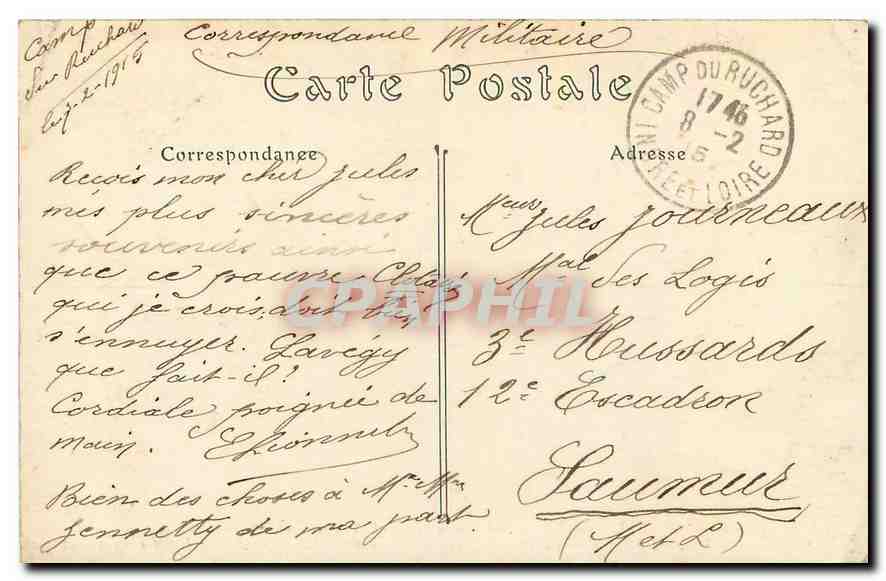 Camp
du Ruchard
le 7-2-1915
Correspondance Militaire
Carte Postale
CAMP DU RUCHARD
17 45
8 -2
15
INDRE ET LOIRE
Correspondance
Adresse
Recois mon cher Jules
mes plus sincères
souvenirs ainsi
que ce pauvre
qui je crois, doit bien
s'ennuyer. Lavégy
que fait-il?
Cordiale poignée de
main. ELionnet
Bien des choses à Mr Mme
Jennetty de ma part.
Meur Jules Journeaux
Mal des Logis
3e Hussards
12e Escadron
Saumur
(M et L)
CPAPHIL